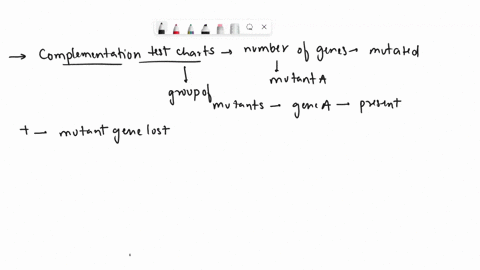 → Complementation test charts → number of genes → mutated
↓ ↓
mutant A
group of
mutants → gene A → present
+ → mutant gene lost